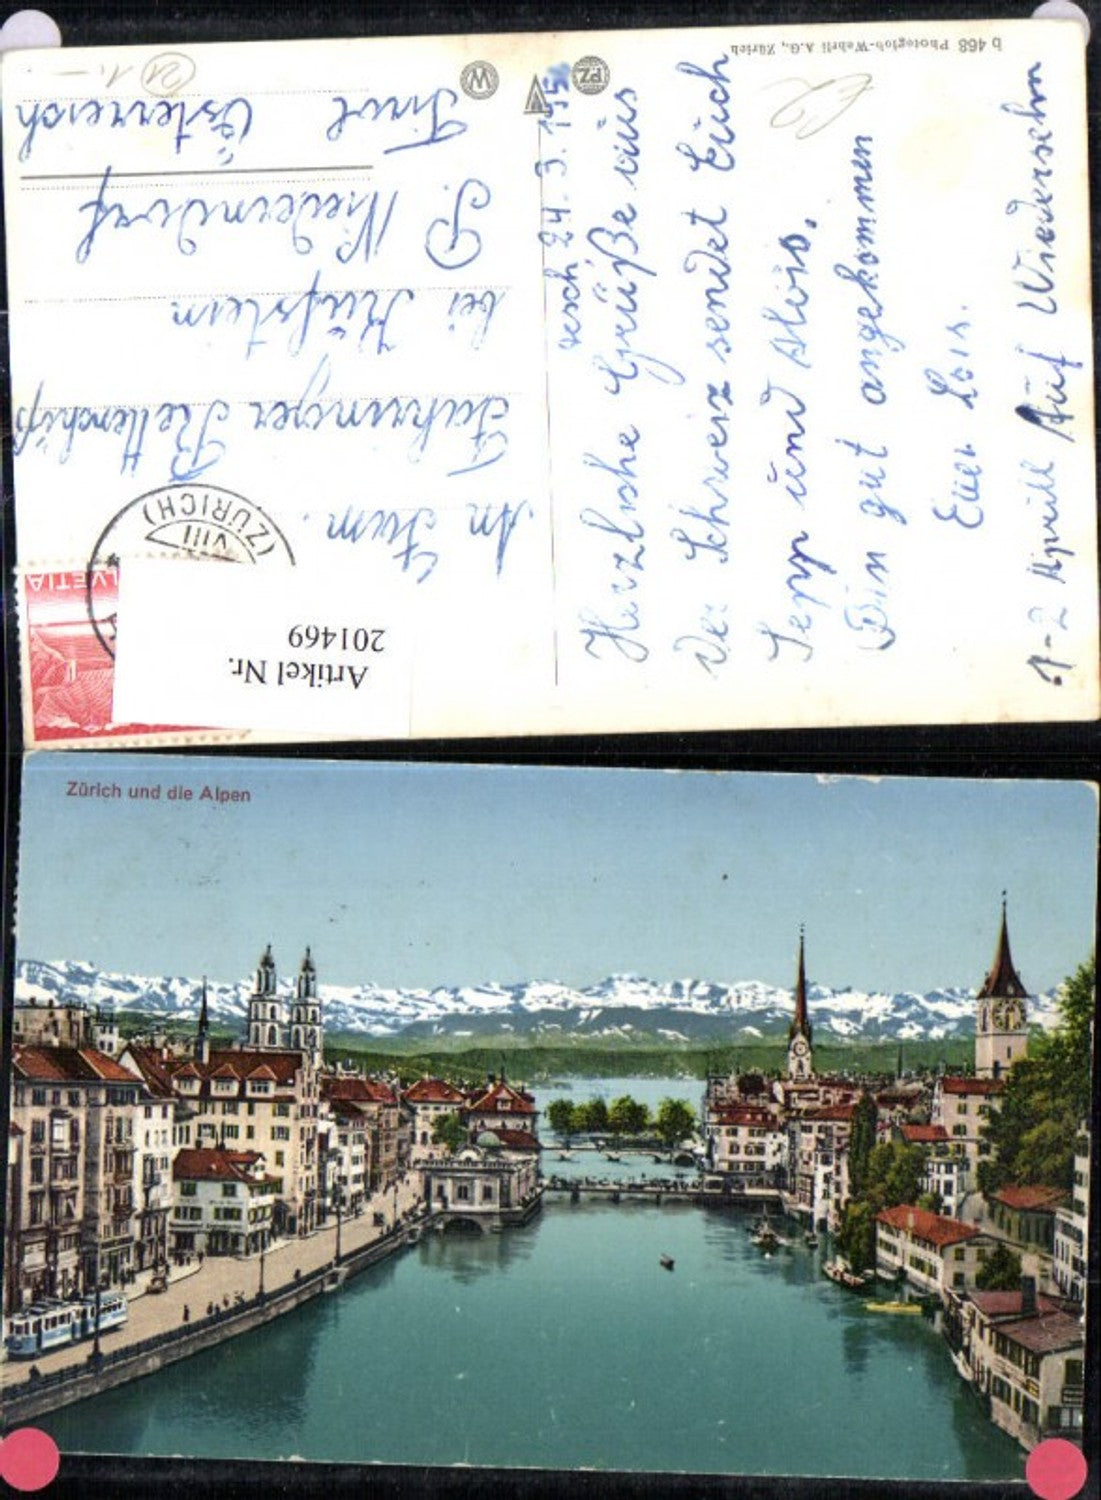 b 468 Photoglob-Wehrli A.G., Zürich
W
PZ
gesch 24. 3. 1951
Herzliche Grüße aus
der Schweiz sendet Euch
Sepp und Alois.
Bin gut angekommen
Euer Lois.
1-2 April Auf Wiedersehn
An Fam.
bei Kufstein
P. Niederndorf
Tirol Österreich
21 1.-
(ZÜRICH)
VIII
HELVETIA
Artikel Nr.
201469
Zürich und die Alpen